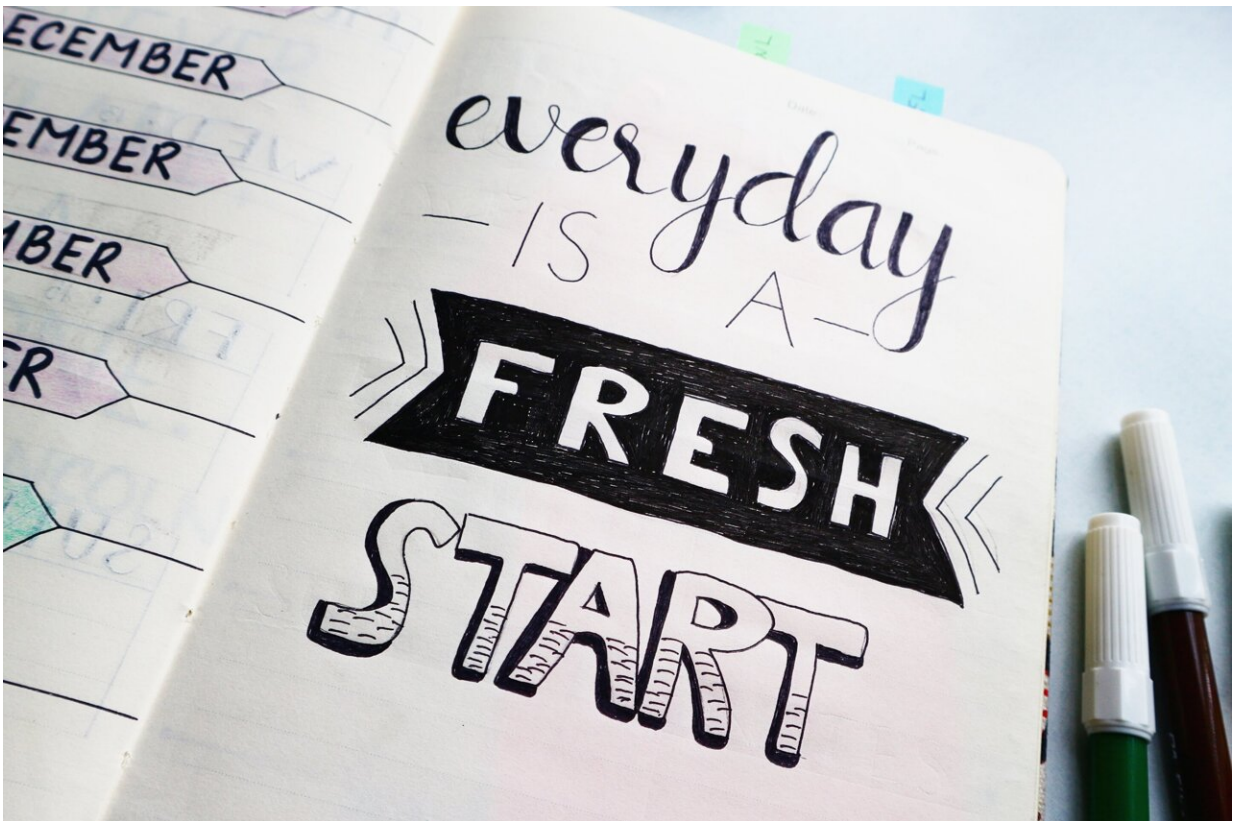 ECEMBER
EMBER
MBER
ER
everyday
IS
A
FRESH
START